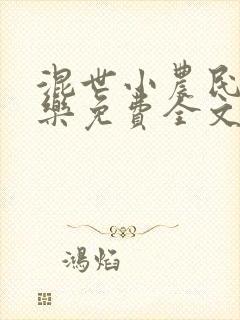 混世小農民
樂免費全文
鴻焰